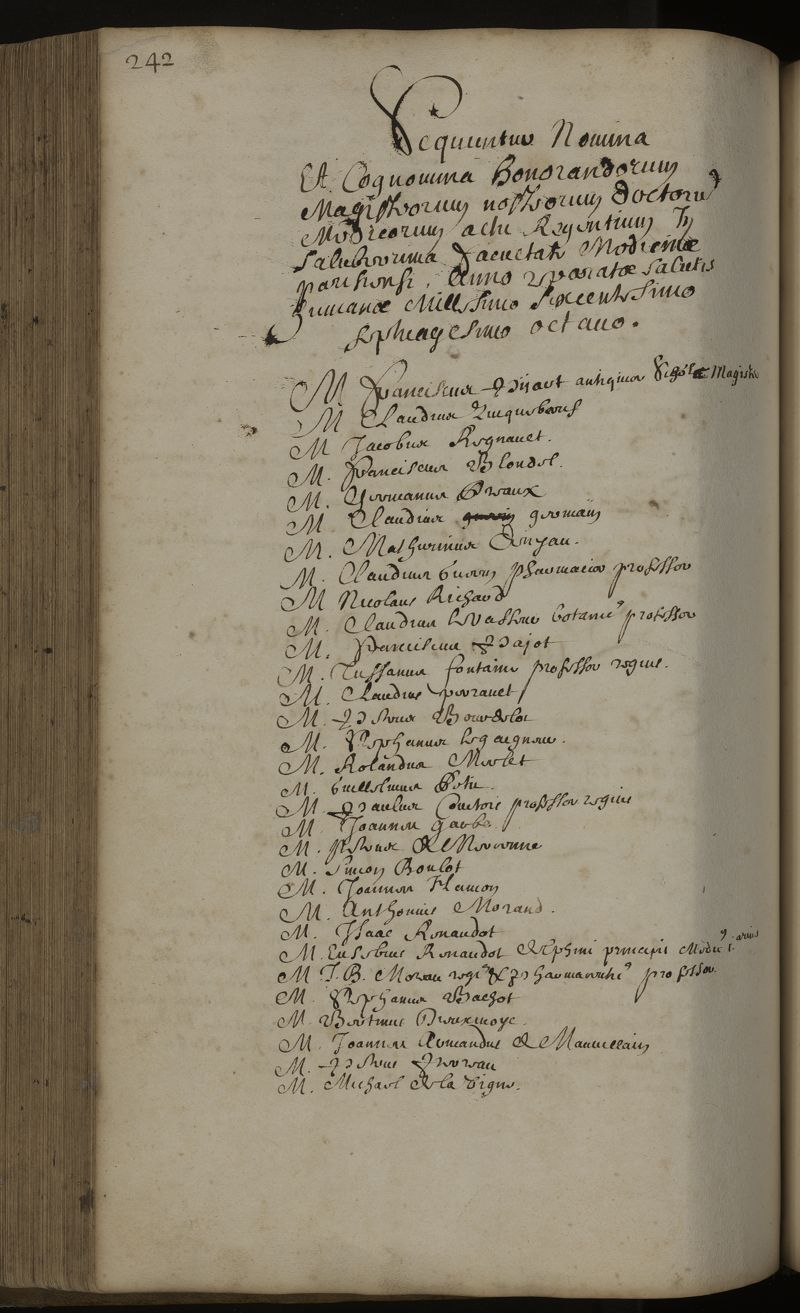 242
Sequuntur Nomina
Et Cognomina Honorandorum
Magistrorum nostrorum doctorum
Medicorum actu Regentium In
saluberrima facultate Medicinæ
parisiensi, Anno reparatæ salutis
humanæ Millesimo sexcentesimo
septuagesimo octavo.
M franciscus antiquior scholæ Magister
M Claudius
M Jacobus Regnault.
M. franciscus Blondel.
M. Germanus Preaux
M. Claudius germain
M. Mathurinus
M. Claudius Guerin pharmaciæ professor
M Nicolaus Richard
M. Claudius le Vasseur botanic professor
M. franciscus Pajot
M. Tussanus fontaine professor regius.
M. Claudius perrault
M. Petrus Bourdelot
M. Stephanus le gaigneur.
M. Rolandus Merlet
M. Guillelmus Petit.
M. Paulus Courtois professor regius
M Joannes garbe.
M. petrus de Mercenne
M. simon Boulot
M. Joannes Hamon
M. Anthonius Morand.
M. Isaac Renaudot
M. Eusebius Renaudot delphini principis Medicus 1.arius
M J. B. Moreau regi et pharmaceutic professor
M. Stephanus Bachot
M. Bertinus Dieuxivoye.
M. Joannes Armandus de Mauvillain
M. Petrus
M. Michael de la vigne.